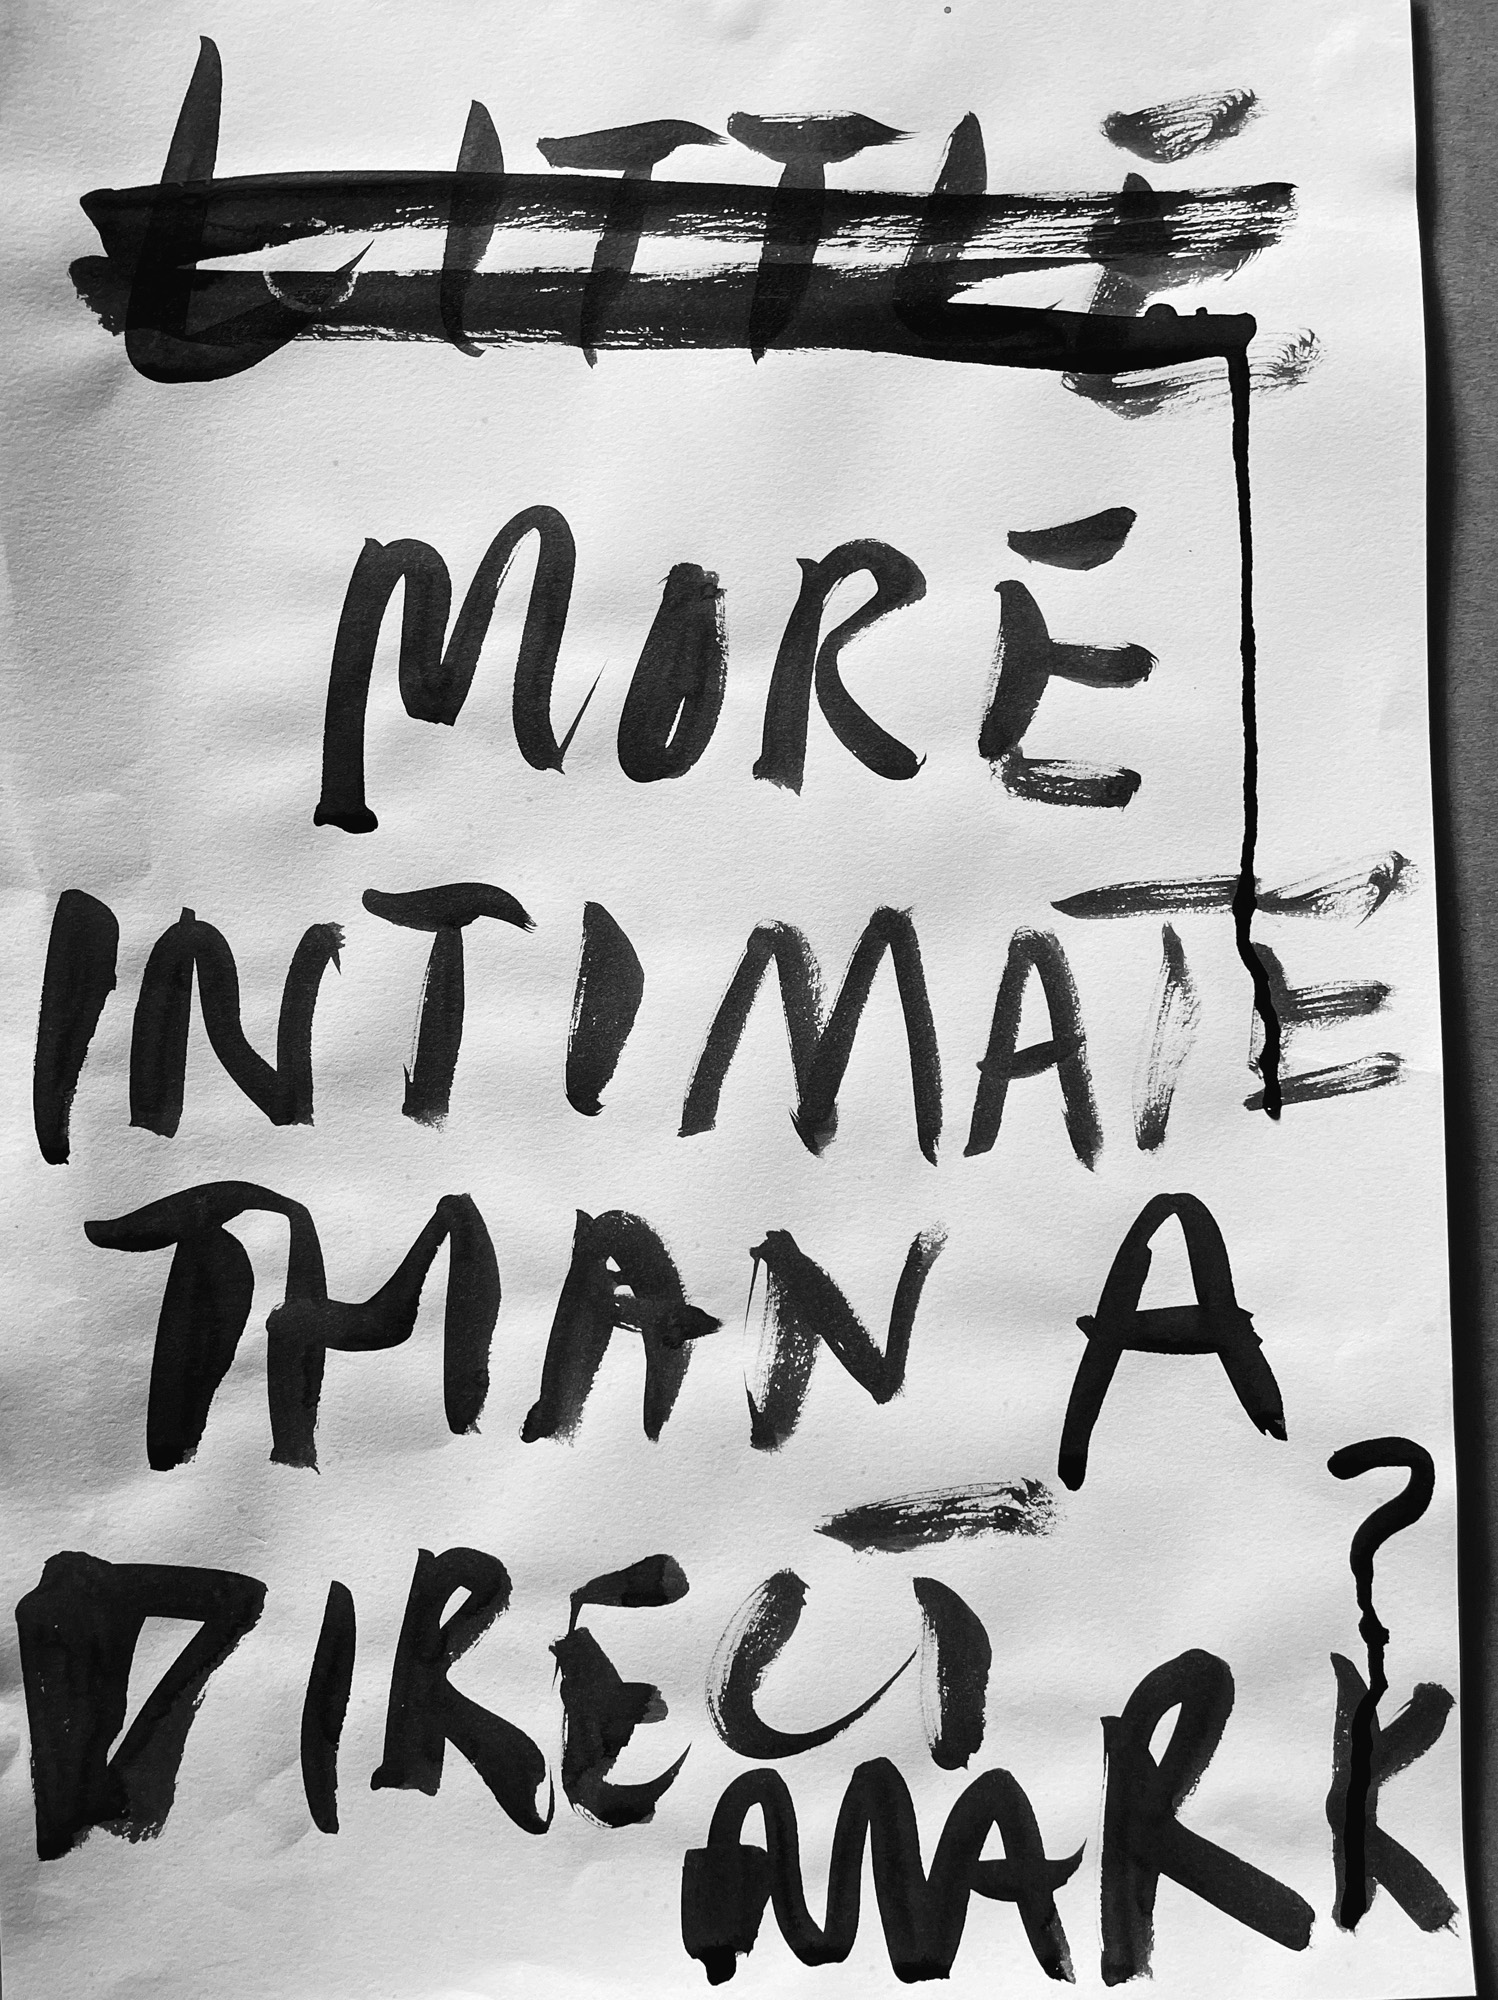 LITTLE
MORE
INTIMATE
THAN A
DIRECT
MARK?